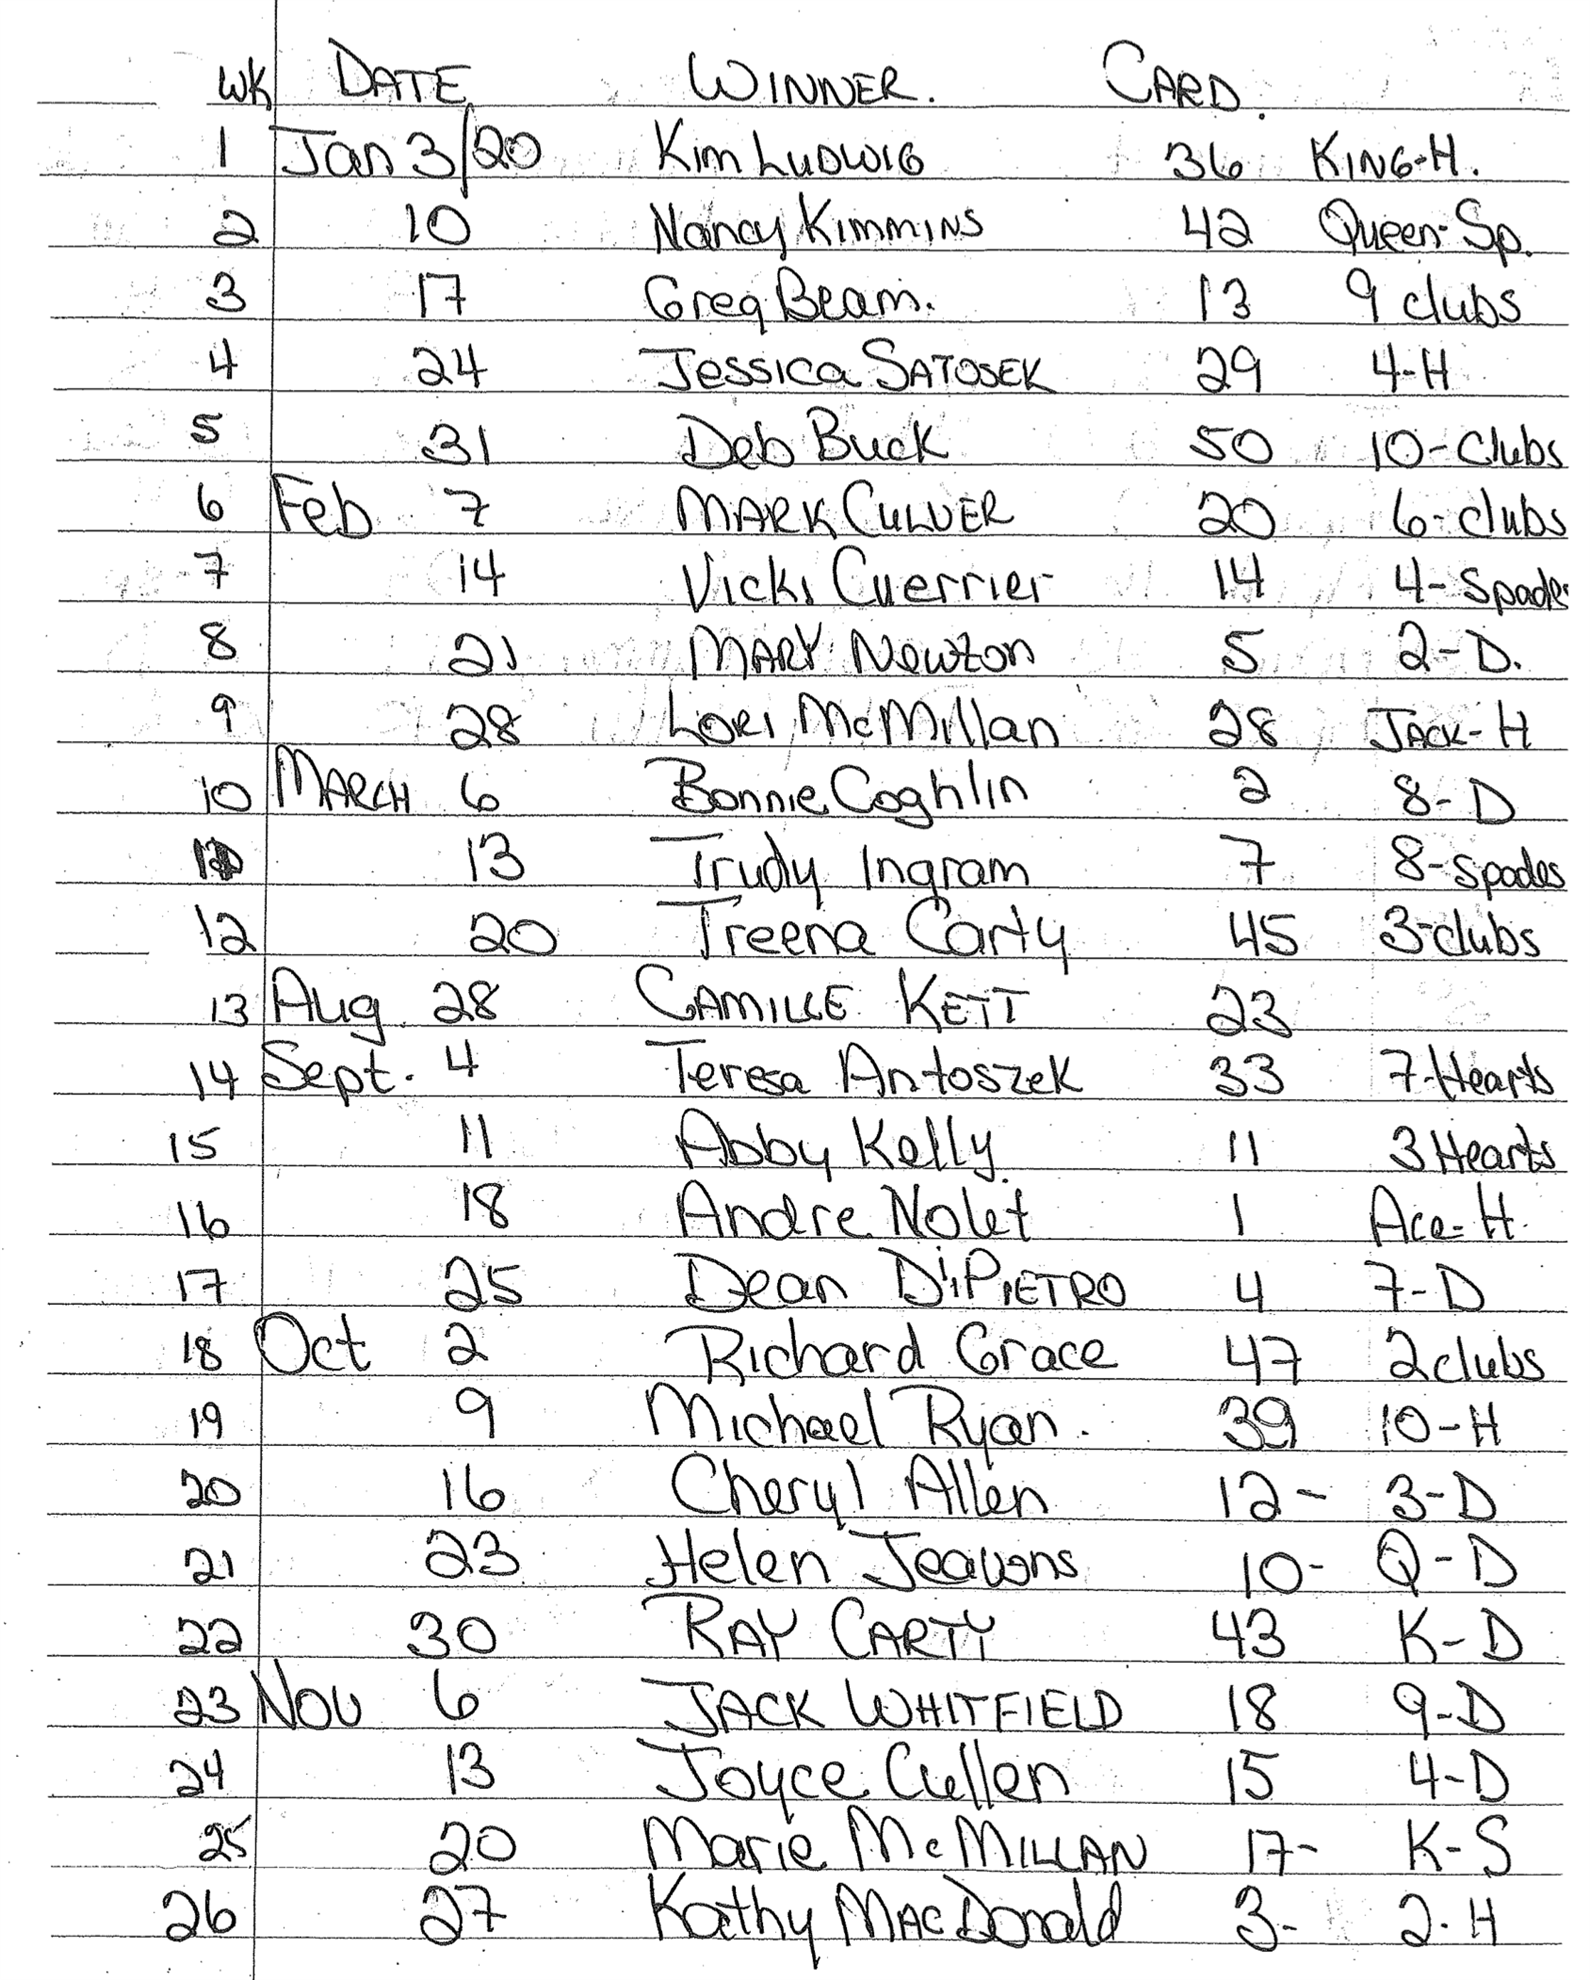 WK DATE WINNER. CARD.
1 Jan 3/20 Kim LUDWIG 36 KING-H.
2 10 Nancy KIMMINS 42 Queen-Sp.
3 17 Greg Beam. 13 9 clubs
4 24 Jessica SATOSEK 29 4-H
5 31 Deb Buck 50 10-Clubs
6 Feb 7 MARK CULVER 20 6-clubs
7 14 Vicki Cuerrier 14 4-Spades
8 21 MARY Newton 5 2-D.
9 28 LORI McMillan 28 JACK-H
10 MARCH 6 Bonnie Coghlin 2 8-D
13 Trudy Ingram 7 8-Spades
12 20 Treena Carty 45 3-clubs
13 Aug 28 CAMILLE KETT 23
14 Sept. 4 Teresa Antoszek 33 7-Hearts
15 11 Abby Kelly 11 3 Hearts
16 18 Andre Nolet 1 Ace-H.
17 25 Dean DiPIETRO 4 7-D
18 Oct 2 Richard Grace 47 2 clubs
19 9 Michael Ryan. 39 10-H
20 16 Cheryl Allen 12- 3-D
21 23 Helen Jeavons 10- Q-D
22 30 RAY CARTY 43 K-D
23 Nov 6 JACK WHITFIELD 18 9-D
24 13 Joyce Cullen 15 4-D
25 20 Marie McMILLAN 17- K-S
26 27 Kathy MACDonald 3- 2-H